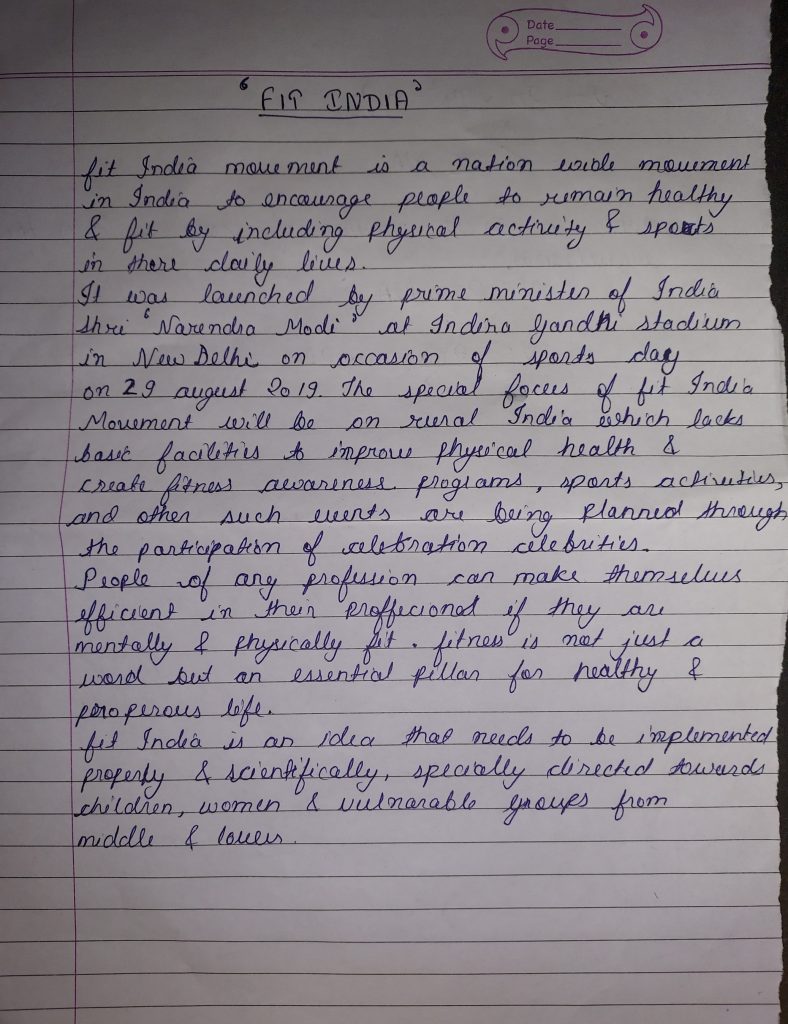 Date
Page
' FIT INDIA '
fit India movement is a nation wide movement
in India to encourage people to remain healthy
& fit by including physical activity & sports
in there daily lives.
It was launched by prime minister of India
Shri ' Narendra Modi ' at Indira Gandhi stadium
in New Delhi on occasion of sports day
on 29 august 2019. The special focus of fit India
Movement will be on rural India which lacks
basic facilities to improve physical health &
create fitness awareness. programs, sports activities,
and other such events are being planned through
the participation of celebration celebrities.
People of any profession can make themselves
efficient in their proffecional if they are
mentally & physically fit. fitness is not just a
word but an essential pillar for healthy &
properous life.
fit India is an idea that needs to be implemented
properly & scientifically, specially directed towards
children, women & vulnarable groups from
middle & lower.